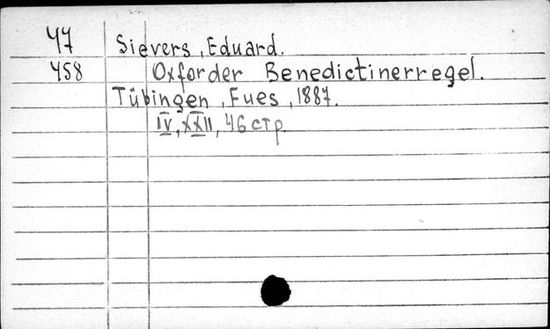 47 Sievers, Eduard.
458 Oxforder Benedictinerregel.
Tübingen, Fues, 1887.
IV, XXII, 46 стр.